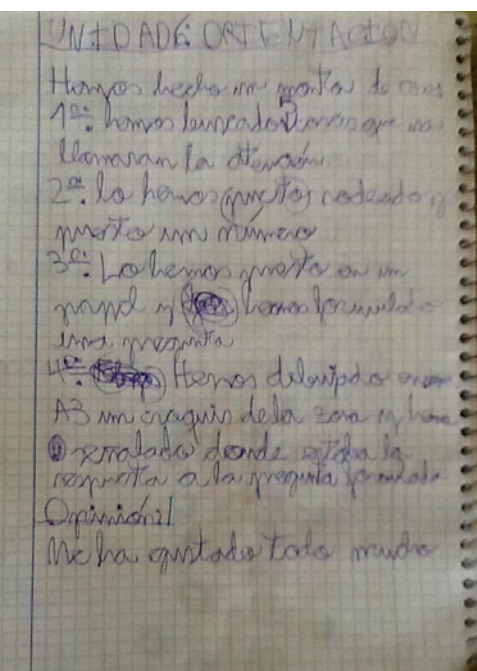 UNIDAD 6: ORIENTACION
Hemos hecho un monton de cosas
1º: hemos buscado 3 cosas que nos
llamaran la atención
2º: lo hemos (puesto) rodeado y
puesto un número
3º: Lo hemos puesto en un
papel y hemos formulado
una pregunta
4º: Hemos dibujado en un
A3 un craquis de la zona y hemos
señalado donde estaba la
respuesta a la pregunta formulada
Opinión:
Me ha gustado todo mucho